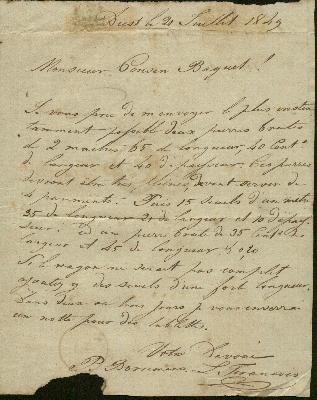 Diest le 21 Juillet 1849
Monsieur Cousin Baguet !
Je vous prie de m'envoyer le plus instan
tamment possible deux pierres brutes
de 2 mètres 65 de longueur 40 Cent.
de largeur et 40 d'épaisseur. Ces pierres
devront être très devant servir de
15 seuils d'un mètre
25 de longueur 21 de largeur et 10 d'épais
seur. et un pierre brute de 35 Cent. de
largeur et 45 de longueur
Si le wagon ne serait pas complet
ajoutez y des seuils d'une forte longueur.
Dans dix ou huit jours je vous enverrai
une notte pour des tablettes.
Votre Dévoué